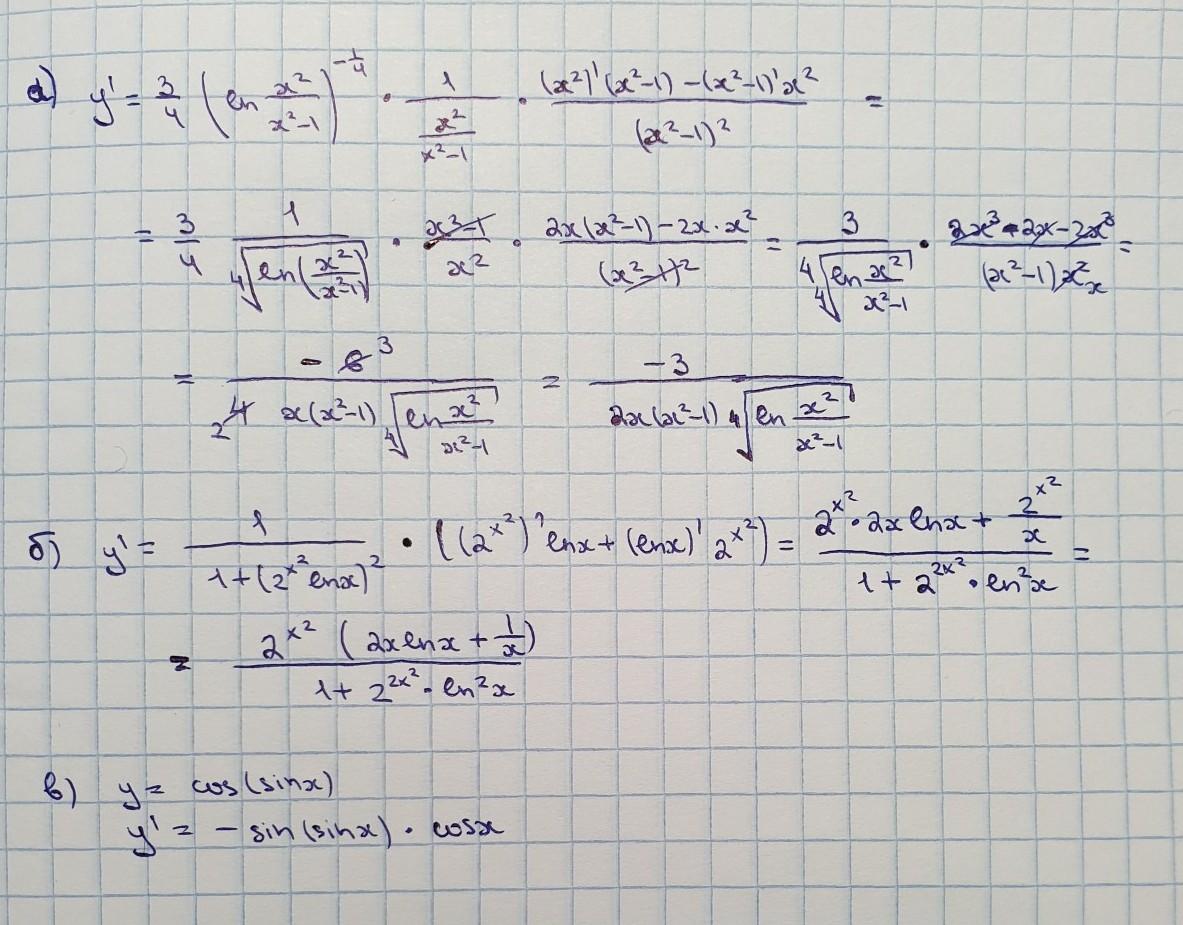 а) y' = 3/4 (ln x²/(x²-1))^(-1/4) · 1/(x²/(x²-1)) · ((x²)'(x²-1) - (x²-1)'x²)/(x²-1)² =
= 3/4 1/⁴√(ln(x²/(x²-1))) · (x³-1)/x² · (2x(x²-1) - 2x·x²)/(x²-1)² = 3/(4 ⁴√(ln x²/(x²-1))) · (2x³-2x-2x³)/((x²-1)x²) x =
= (-6 3)/(2 4 x(x²-1) ⁴√(ln x²/(x²-1))) = -3/(2x(x²-1) ⁴√(ln x²/(x²-1)))
б) y' = 1/(1+(2^(x²) lnx)²) · ((2^(x²))' lnx + (lnx)' 2^(x²)) = (2^(x²)·2x lnx + 2^(x²)/x)/(1 + 2^(2x²)·ln²x) =
= 2^(x²) (2x lnx + 1/x)/(1 + 2^(2x²)·ln²x)
в) y = cos(sinx)
y' = - sin(sinx) · cosx